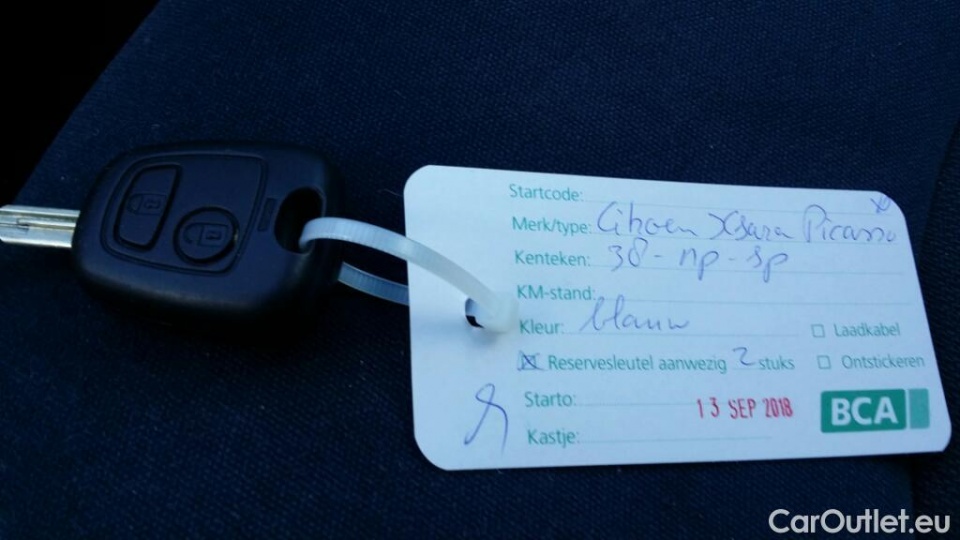 Startcode:
Merk/type: Citroen Xsara Picasso
Kenteken: 38-np-sp
KM-stand:
Kleur: blauw
Laadkabel
Reservesleutel aanwezig 2 stuks
Ontstickeren
Starto:
13 SEP 2018
BCA
Kastje:
CarOutlet.eu